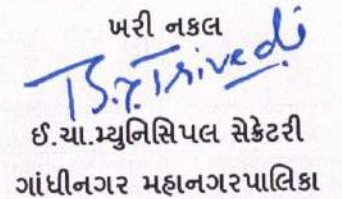 ખરી નકલ
B.Y.Trivedi
ઈ.ચા.મ્યુનિસિપલ સેક્રેટરી
ગાંધીનગર મહાનગરપાલિકા